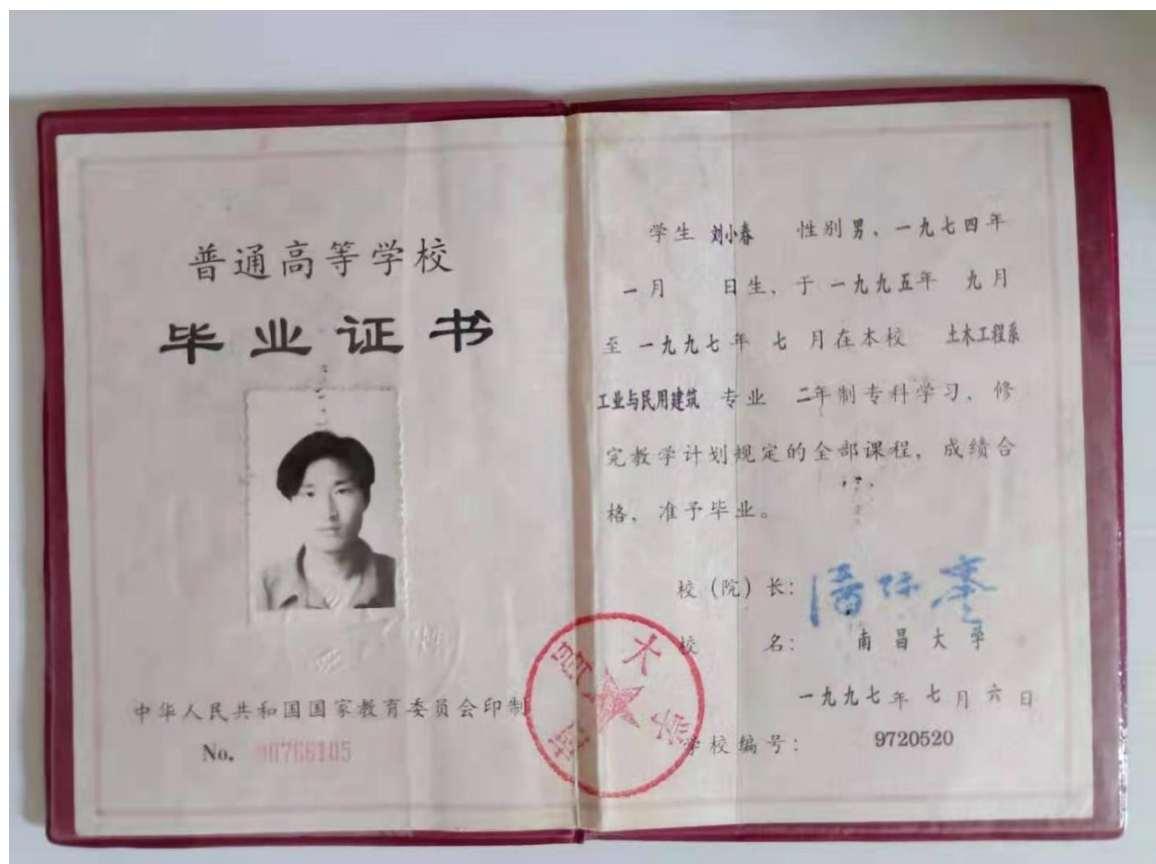 普通高等学校
毕业证书
中华人民共和国国家教育委员会印制
No. 00766105
学生 刘小春 性别 男、一九七四年
一月 日生、于 一九九五年 九月
至 一九九七年 七月在本校 土木工程系
工业与民用建筑 专业 二年制专科学习、修
完教学计划规定的全部课程、成绩合
格、准予毕业。
校(院)长: 潘际銮
校 名: 南昌大学
一九九七年七月六日
学校编号: 9720520
南昌大学